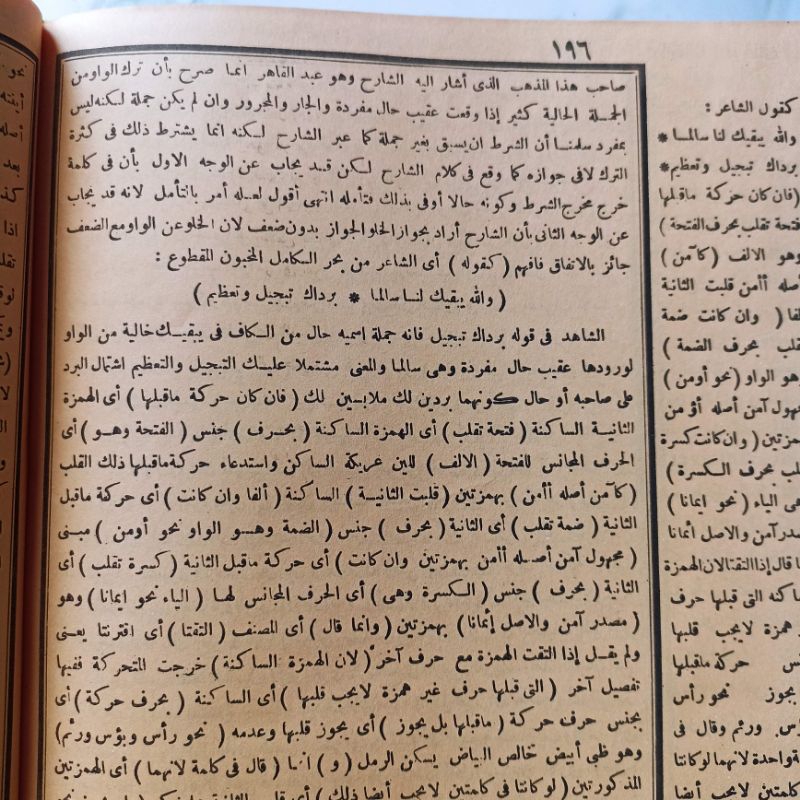 ١٩٦
صاحب هذا المذهب الذى أشار اليه الشارح وهو عبد القاهر انما صرح بأن ترك الواو من
الجملة الحالية كثير إذا وقعت عقيب حال مفردة والجار والمجرور وان لم يكن جملة لكنه ليس
بمفرد سلمنا أن الشرط ان يسبق بغير جملة كما عبر الشارح لكنه انما يشترط ذلك فى كثرة
الترك لافى جوازه كما وقع فى كلام الشارح لكن قد يجاب عن الوجه الاول بأن فى كلمة
خرج مخرج الشرط وكونه حالا أوفى بذلك فتأمله انتهى أقول لعله أمر بالتأمل لانه قد يجاب
عن الوجه الثانى بأن الشارح أراد بجواز الخلو الجواز بدون ضعف لان الخلو عن الواو مع الضعف
جائز بالاتفاق فافهم ( كقوله ) أى الشاعر من بحر السكامل المخبون المقطوع :
( والله يبقيك لنا سالما * برداك تبجيل وتعظيم )
الشاهد فى قوله برداك تبجيل فانه جملة اسميه حال من الكاف فى يبقيك خالية من الواو
لورودها عقيب حال مفردة وهى سالما والمعنى مشتملا عليك التبجيل والتعظيم اشتمال البرد
على صاحبه أو حال كونهما بردين لك ملابسين لك ( فان كان حركة ماقبلها ) أى الهمزة
الثانية الساكنة ( فتحة تقلب ) أى الهمزة الساكنة ( بحرف ) جنس ( الفتحة وهو ) أى
الحرف المجانس للفتحة ( الالف ) للين عريكة الساكن واستدعاء حركة ماقبلها ذلك القلب
( كآمن أصله أأمن ) بهمزتين ( قلبت الثانية ) الساكنة ( ألفا وان كانت ) أى حركة ماقبل
الثانية ( ضمة تقلب ) أى الثانية ( بحرف ) جنس ( الضمة وهو الواو نحو أومن ) مبنى
( مجهول آمن أصله أأمن بهمزتين وان كانت ) أى حركة ماقبل الثانية ( كسرة تقلب ) أى
الثانية ( بحرف ) جنس ( الكسرة وهى ) أى الحرف المجانس لها ( الياء نحو ايمانا ) وهو
( مصدر آمن والاصل إئمانا ) بهمزتين ( وانما قال ) أى المصنف ( التقتا ) أى اقترنتا يعنى
ولم يقل إذا التقت الهمزة مع حرف آخر ( لان الهمزة الساكنة ) خرجت المتحركة ففيها
تفصيل آخر ( التى قبلها حرف غير همزة لايجب قلبها ) أى الساكنة ( بحرف حركة ) أى
بجنس حرف حركة ( ماقبلها بل يجوز ) أى يجوز قلبها وعدمه ( نحو رأس وبؤس ورئم )
وهو ظبى أبيض خالص البياض يسكن الرمل ( و ) انما ( قال فى كلمة لانهما ) أى الهمزتين
المذكورتين ( لو كانتا فى كلمتين لايجب أيضا ذلك )
كقول الشاعر :
والله يبقيك لنا سالما *
برداك تبجيل وتعظيم *
( فان كان حركة ماقبلها
فتحة تقلب بحرف الفتحة )
وهو الالف ( كآمن )
أصله أأمن قلبت الثانية
ألفا ( وان كانت ضمة
تقلب بحرف الضمة )
وهو الواو ( نحو أومن )
مجهول آمن أصله أؤمن
بهمزتين ( وان كانت كسرة
تقلب بحرف الكسرة )
وهى الياء ( نحو ايمانا )
مصدر آمن والاصل ائمانا
قال إذا التقتا لان الهمزة
ساكنه التى قبلها حرف
همزة لايجب قلبها
حركة ماقبلها
يجوز نحو رأس
ورئم وقال فى
واحدة لانهما لو كانتا
كلمتين لايجب أيضا